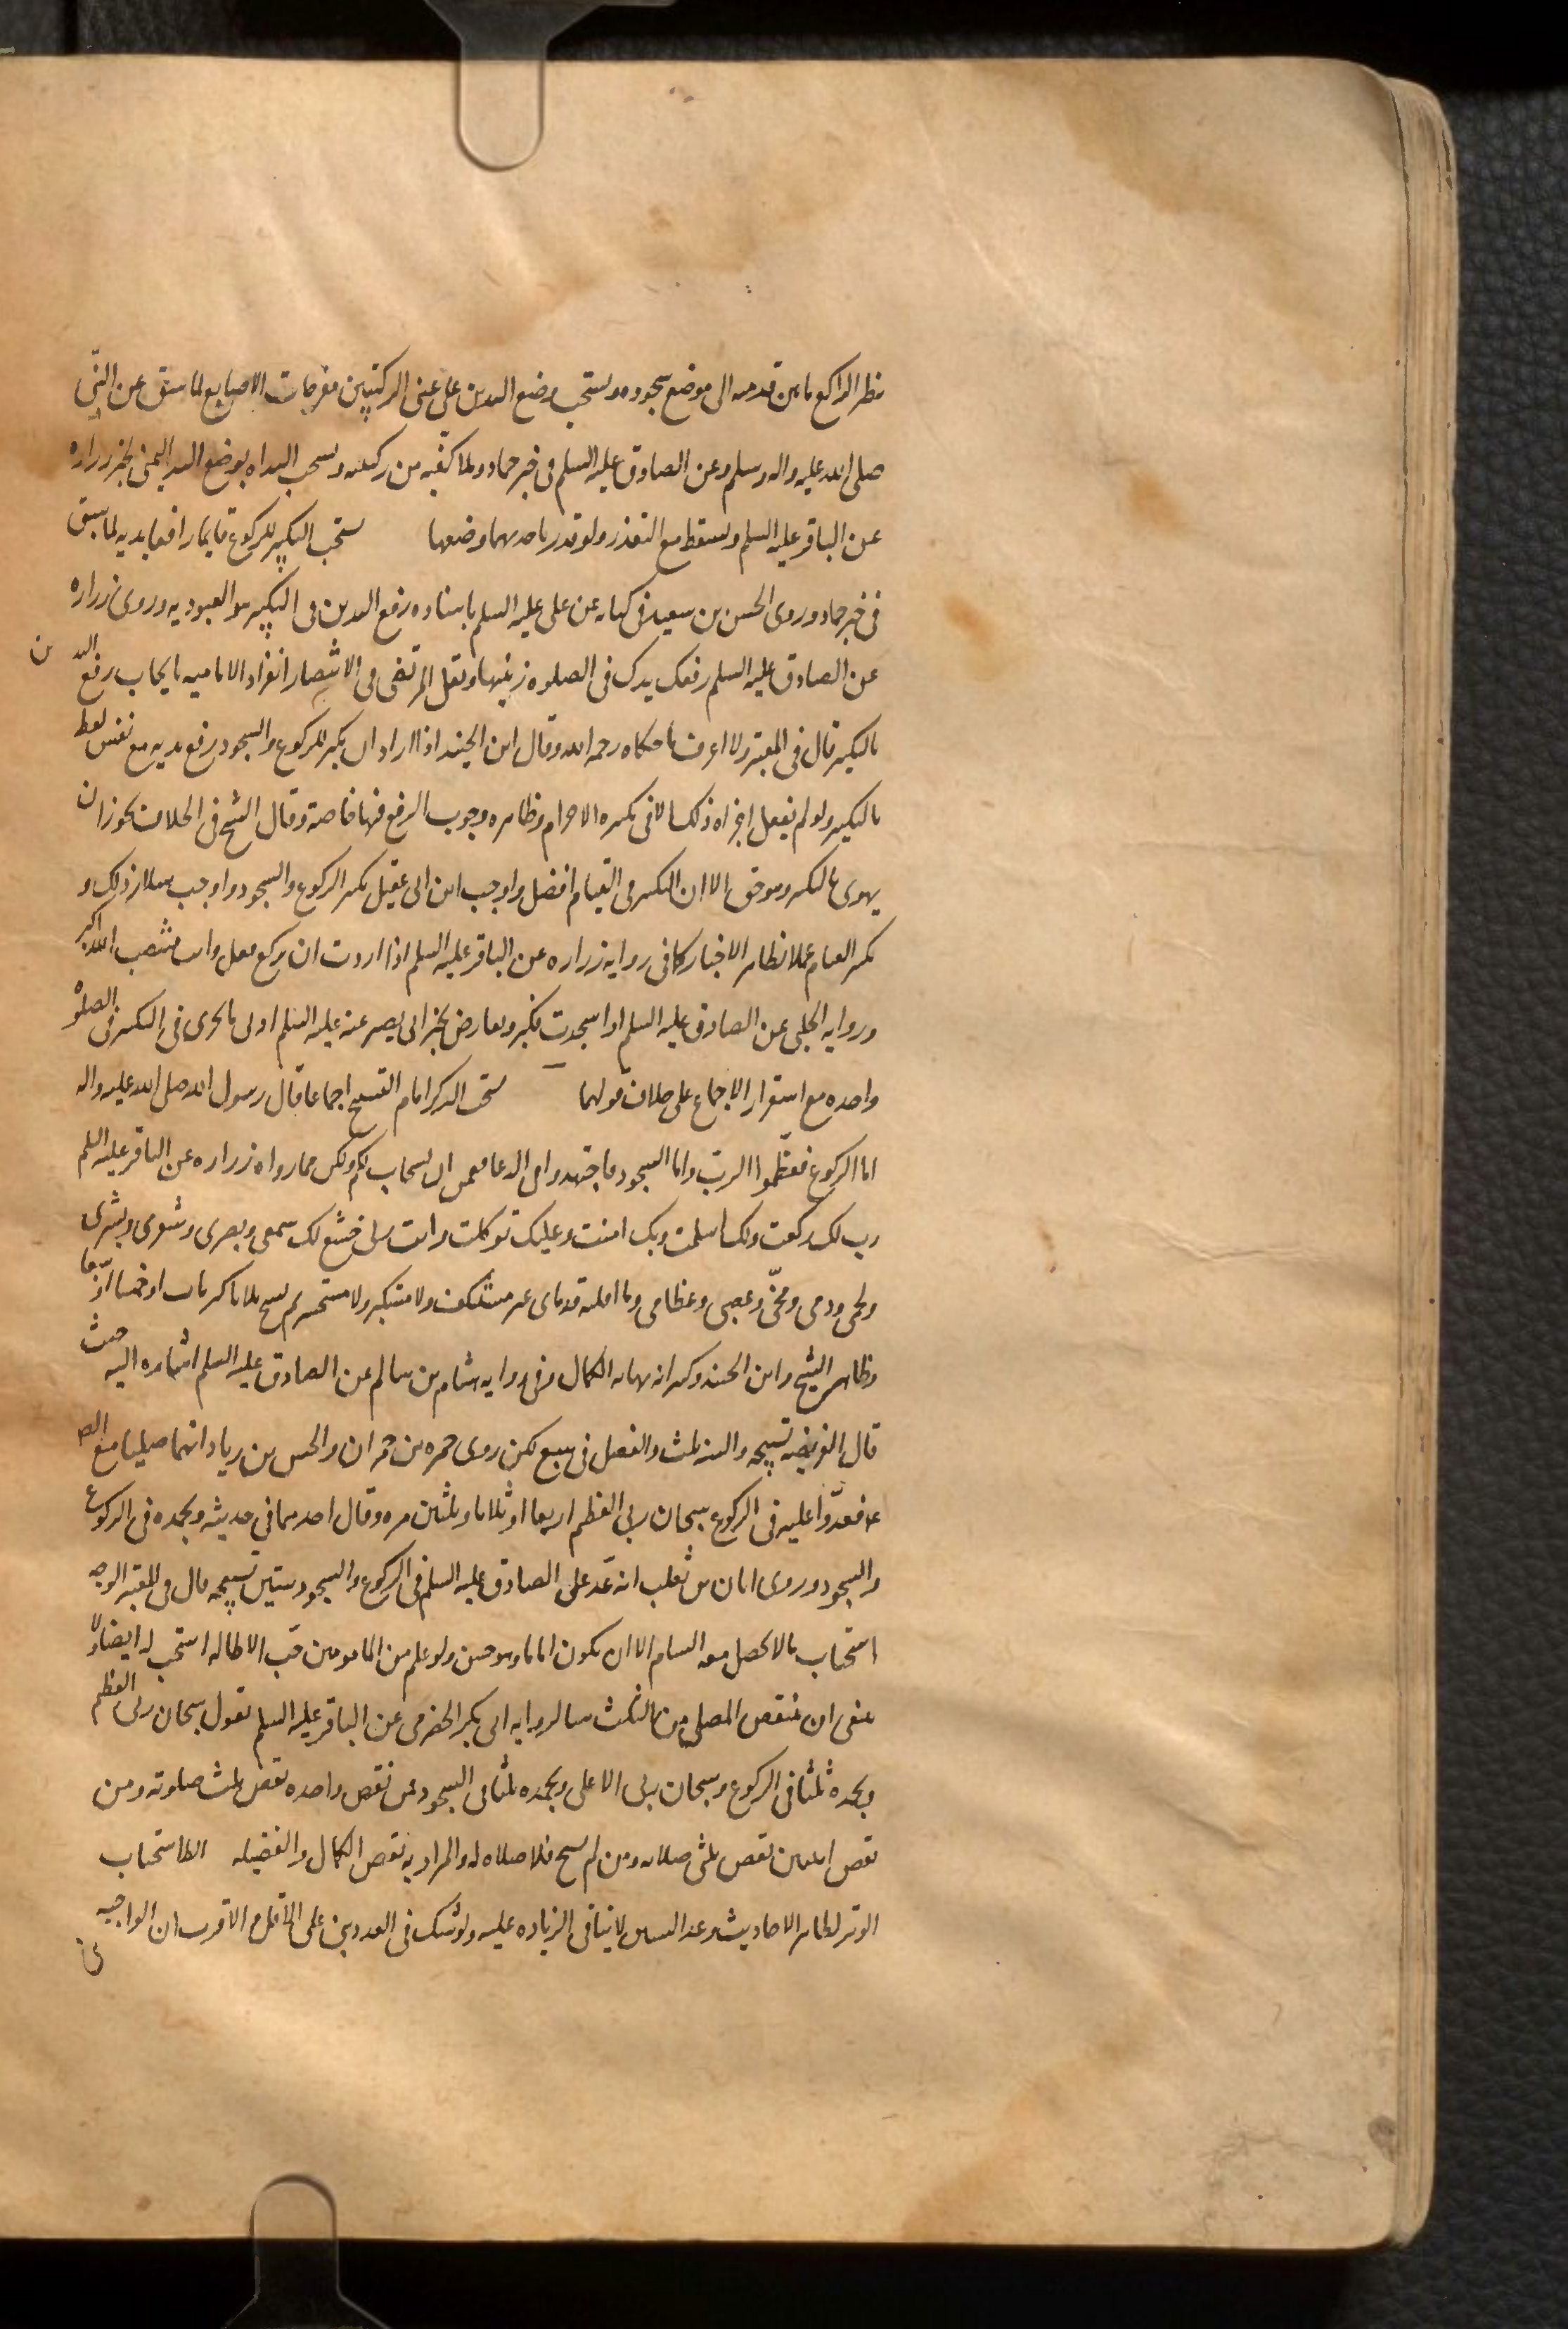 نظر الراكع ما بين قدميه الى موضع سجوده ويستحب وضع اليدين على عيني الركبتين مفرجات الاصابع لما سبق عن النبي
صلى الله عليه واله وسلم وعن الصادق عليه السلم في خبر حماد وملا كفيه من ركبتيه ويستحب البداه بوضع اليد اليمنى لخبر زراره
عن الباقر عليه السلم ويسقط مع التعذر ولو تعذر باحديهما وضعها يستحب التكبير للركوع قايما رافعا يديه لما سبق
في خبر حماد وروى الحسن بن سعيد في كتابه عن علي عليه السلم باسناده رفع اليدين في التكبير هو العبوديه وروى زراره
عن الصادق عليه السلم رفعك يدك في الصلوه زينتها ونقل المرتضى في الانتصار انفراد الاماميه بايجاب رفع اليدين
بالتكبير قال في المعتبر ولا اعرف ما حكاه رحمه الله وقال ابن الجنيد اذا اراد ان يكبر للركوع والسجود رفع يديه مع نفس لفظ
بالتكبير ولو لم يفعل اجزاه ذلك الا في تكبيره الاحرام وظاهره وجوب الرفع فيها خاصة وقال الشيخ في الخلاف يجوز ان
يهوي بالتكبير وهو حق الا ان التكبير في القيام افضل واوجب ابن ابي عقيل تكبير الركوع والسجود واوجب سلار ذلك و
تكبير القيام عملا بظاهر الاخبار كما في روايه زراره عن الباقر عليه السلم اذا اردت ان تركع فقل وانت منتصب الله اكبر
وروايه الحلبي عن الصادق عليه السلم اذا سجدت فكبر ويعارض بخبر ابي بصير عنه عليه السلم ادنى ما يجزى في التكبير في الصلوة
واحده مع استقرار الاجماع على خلاف قولهما يستحب الذكر امام التسبيح اجماعا قال رسول الله صلى الله عليه واله
اما الركوع فعظموا الرب واما السجود فاجتهدوا في الدعا فقمن ان يستجاب لكم وليكن مما رواه زراره عن الباقر عليه السلم
رب لك ركعت ولك اسلمت وبك امنت وعليك توكلت وانت ربى خشع لك سمعي وبصري وشعري وبشرى
ولحمي ودمي ومخي وعصبي وعظامي وما اقلته قدماى غير مستنكف ولا مستكبر ولا مستحسر ثم يسبح ثلاثا كبريات او خمسا او سبعا
وظاهر الشيخ وابن الجنيد وكثير انه نهايه الكمال وفي روايه هشام بن سالم عن الصادق عليه السلم اشاره اليه حيث
قال الفريضه تسبيحه والسنه ثلث والفضل في سبع لكن روى حمزه بن حمران والحسن بن زياد انهما صليا مع الص
ع فعدوا عليه في الركوع سبحان ربي العظيم اربعا او ثلاثا وثلثين مره وقال احدهما في حديثه وبحمده في الركوع
والسجود وروى ابان بن تغلب انه عد على الصادق عليه السلم في الركوع والسجود ستين تسبيحه قال في المعتبر الوجه
استحباب ما لا يحصل معه السام الا ان يكون اماما وهو حسن ولو علم من المامومين حب الاطاله استحب له ايضا ولا
ينبغي ان ينقص المصلي من الثلث شيا لروايه ابي بكر الحضرمي عن الباقر عليه السلم تقول سبحان ربي العظيم
وبحمده ثلثا في الركوع وسبحان ربي الاعلى وبحمده ثلثا في السجود فمن نقص واحده نقص ثلث صلوته ومن
نقص اثنتين نقص ثلثى صلاته ومن لم يسبح فلا صلاه له والمراد به نقص الكمال والفضيله الظا استحباب
الوتر لظاهر الاحاديث وعد الستين لا ينافي الزياده عليه ولو شك في العدد بنى على الاقل و الاقرب ان الواجبه